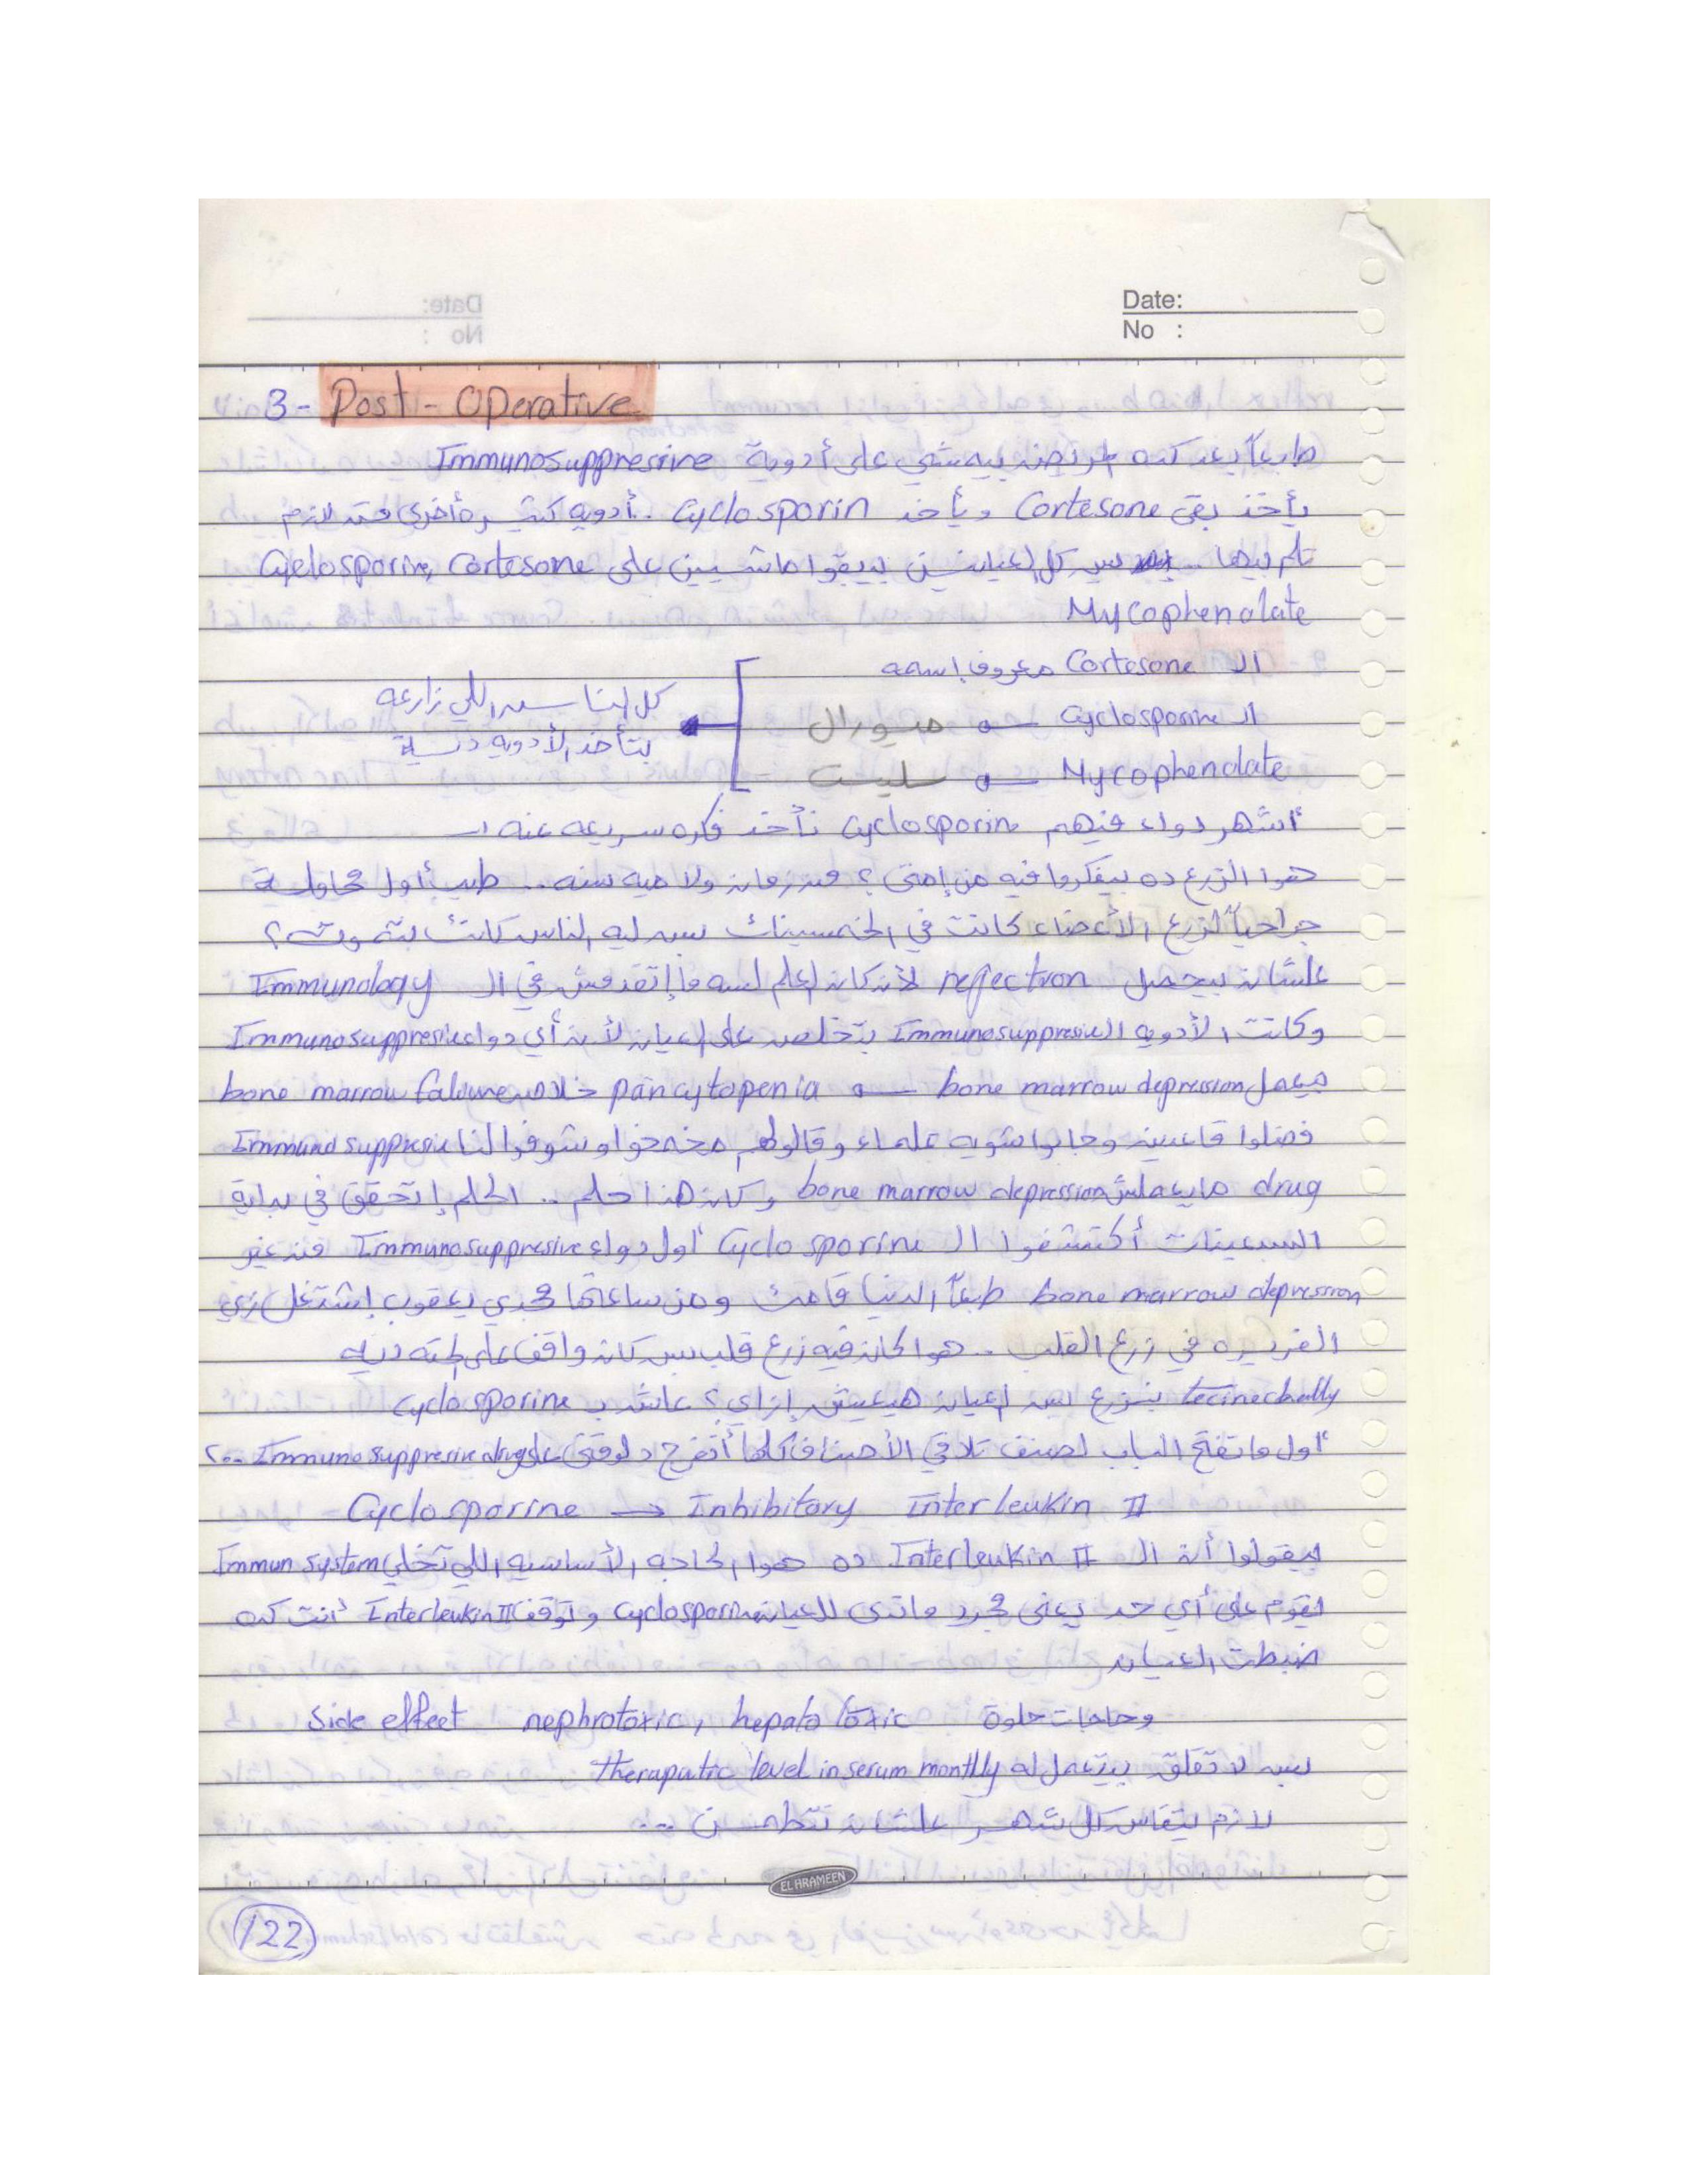 Date:
No :
3- Post-Operative
طبعاً بعد كده المريض بيه شي على أدوية Immunosuppressive
يأخذ بقى Cortesone ويأخذ Cyclosporin .. أدويه كتير وأخرى فتد لازم
تلم بيها .. بس كل العيانين بيبقوا ماشيين على Cyclosporin, Cortesone
Mycophenolate
الـ Cortesone معروف إسمه
الـ Cyclosporine → نيورال
Mycophenolate → سلسبت
كل الناس اللي زارعه
بتأخذ الأدويه ديه
أشهر دواء فيهم Cyclosporin نأخذ فكره سريعه عنه :-
هوا الزرع ده بيفكروا فيه من إمتى؟ من زمان ولا ميه سنه .. طيب أول محاولة
جراحياً لزرع الأعضاء كانت في الخمسينات بس ليه الناس كانت بتموت؟
علشان بيحصل rejection لأن كان العلم لسه ما إتقدمش في الـ Immunology
وكانت الأدويه الـ Immunosuppresive بتخلص على العيان لأن أي دواء Immunosuppresive
بيعمل bone marrow depression → pancytopenia خلاص bone marrow faliure
فضلوا قاعدين وجابوا شويه علماء وقالولهم مخمخوا وشوفوا لنا Immuno suppresive
drug مايعملش bone marrow depression وكان هذا حلم .. الحلم إتحقق في بداية
السبعينات أكتشفوا الـ Cyclo sporine أول دواء Immunosuppresive من غير
bone marrow depression طبعاً الدنيا قامت ومن ساعتها مجدي يعقوب إشتغل زي
الفريره في زرع القلب .. هوا كان فيه زرع قلب بس كان واقف على الحته ديه
tecinechally بنزرع بس العيان هيعيش إزاي؟ عاش بـ Cyclosporine
أول ما تفتح الباب لصنف تلاقي الأصناف كلها أتفرج دلوقتي على Immuno suppresive drugs ..؟
Cyclosporine → Inhibitory Interleukin II
بيقولوا أن الـ Interleukin II ده هوا الحاجه الأساسيه اللي تخلي Immun system
يقوم على أي حد يعني مجرد ماتدى للعيان Cyclosporine وتوقف Interleukin II أنت كده
ضبطت العيان
Side effect nephrotoxic, hepato toxic وحاجات حلوة
بس لا تقلق بيتعمل له therapatic level in serum montlly
لازم يتقاس كل شهر علشان نتطمن ...
EL ARAMEEN
122